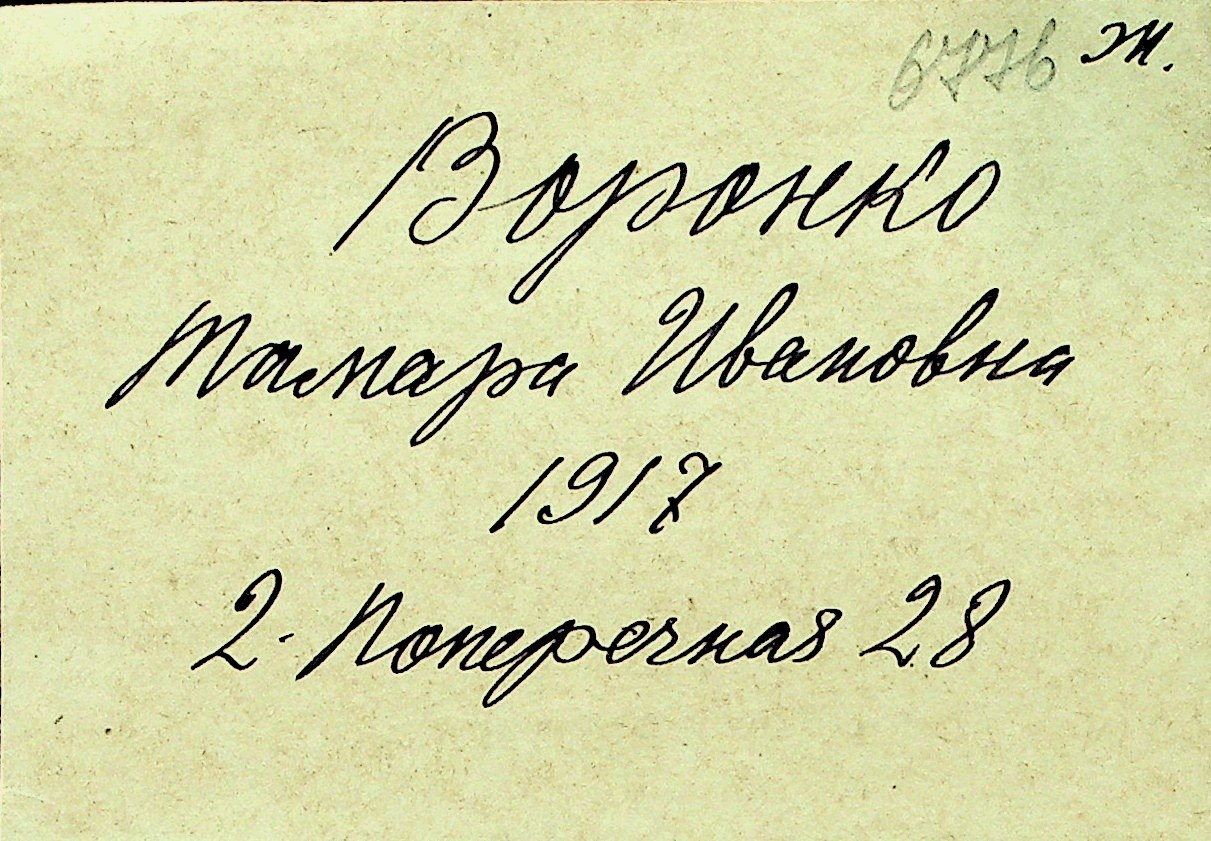 6776 ж.
Воронко
Тамара Ивановна
1917
2-Поперечная 28